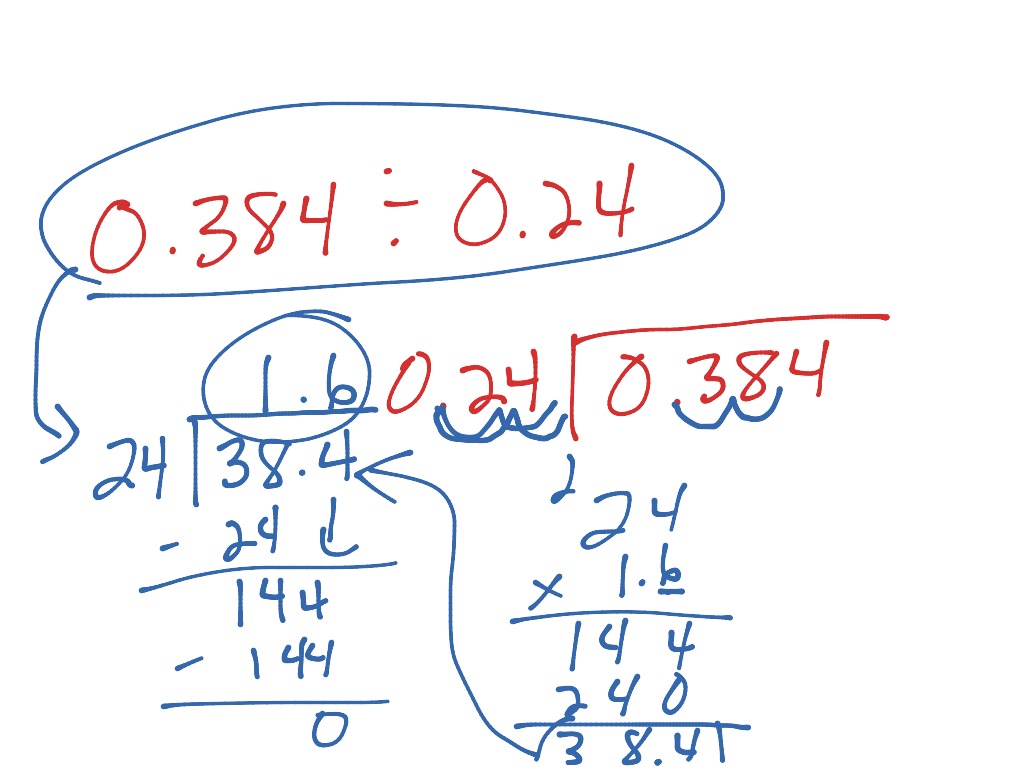 0.384 ÷ 0.24
0.24 0.384
1.6
24 38.4
- 24
144
- 144
0
2
24
× 1.6
144
240
38.4